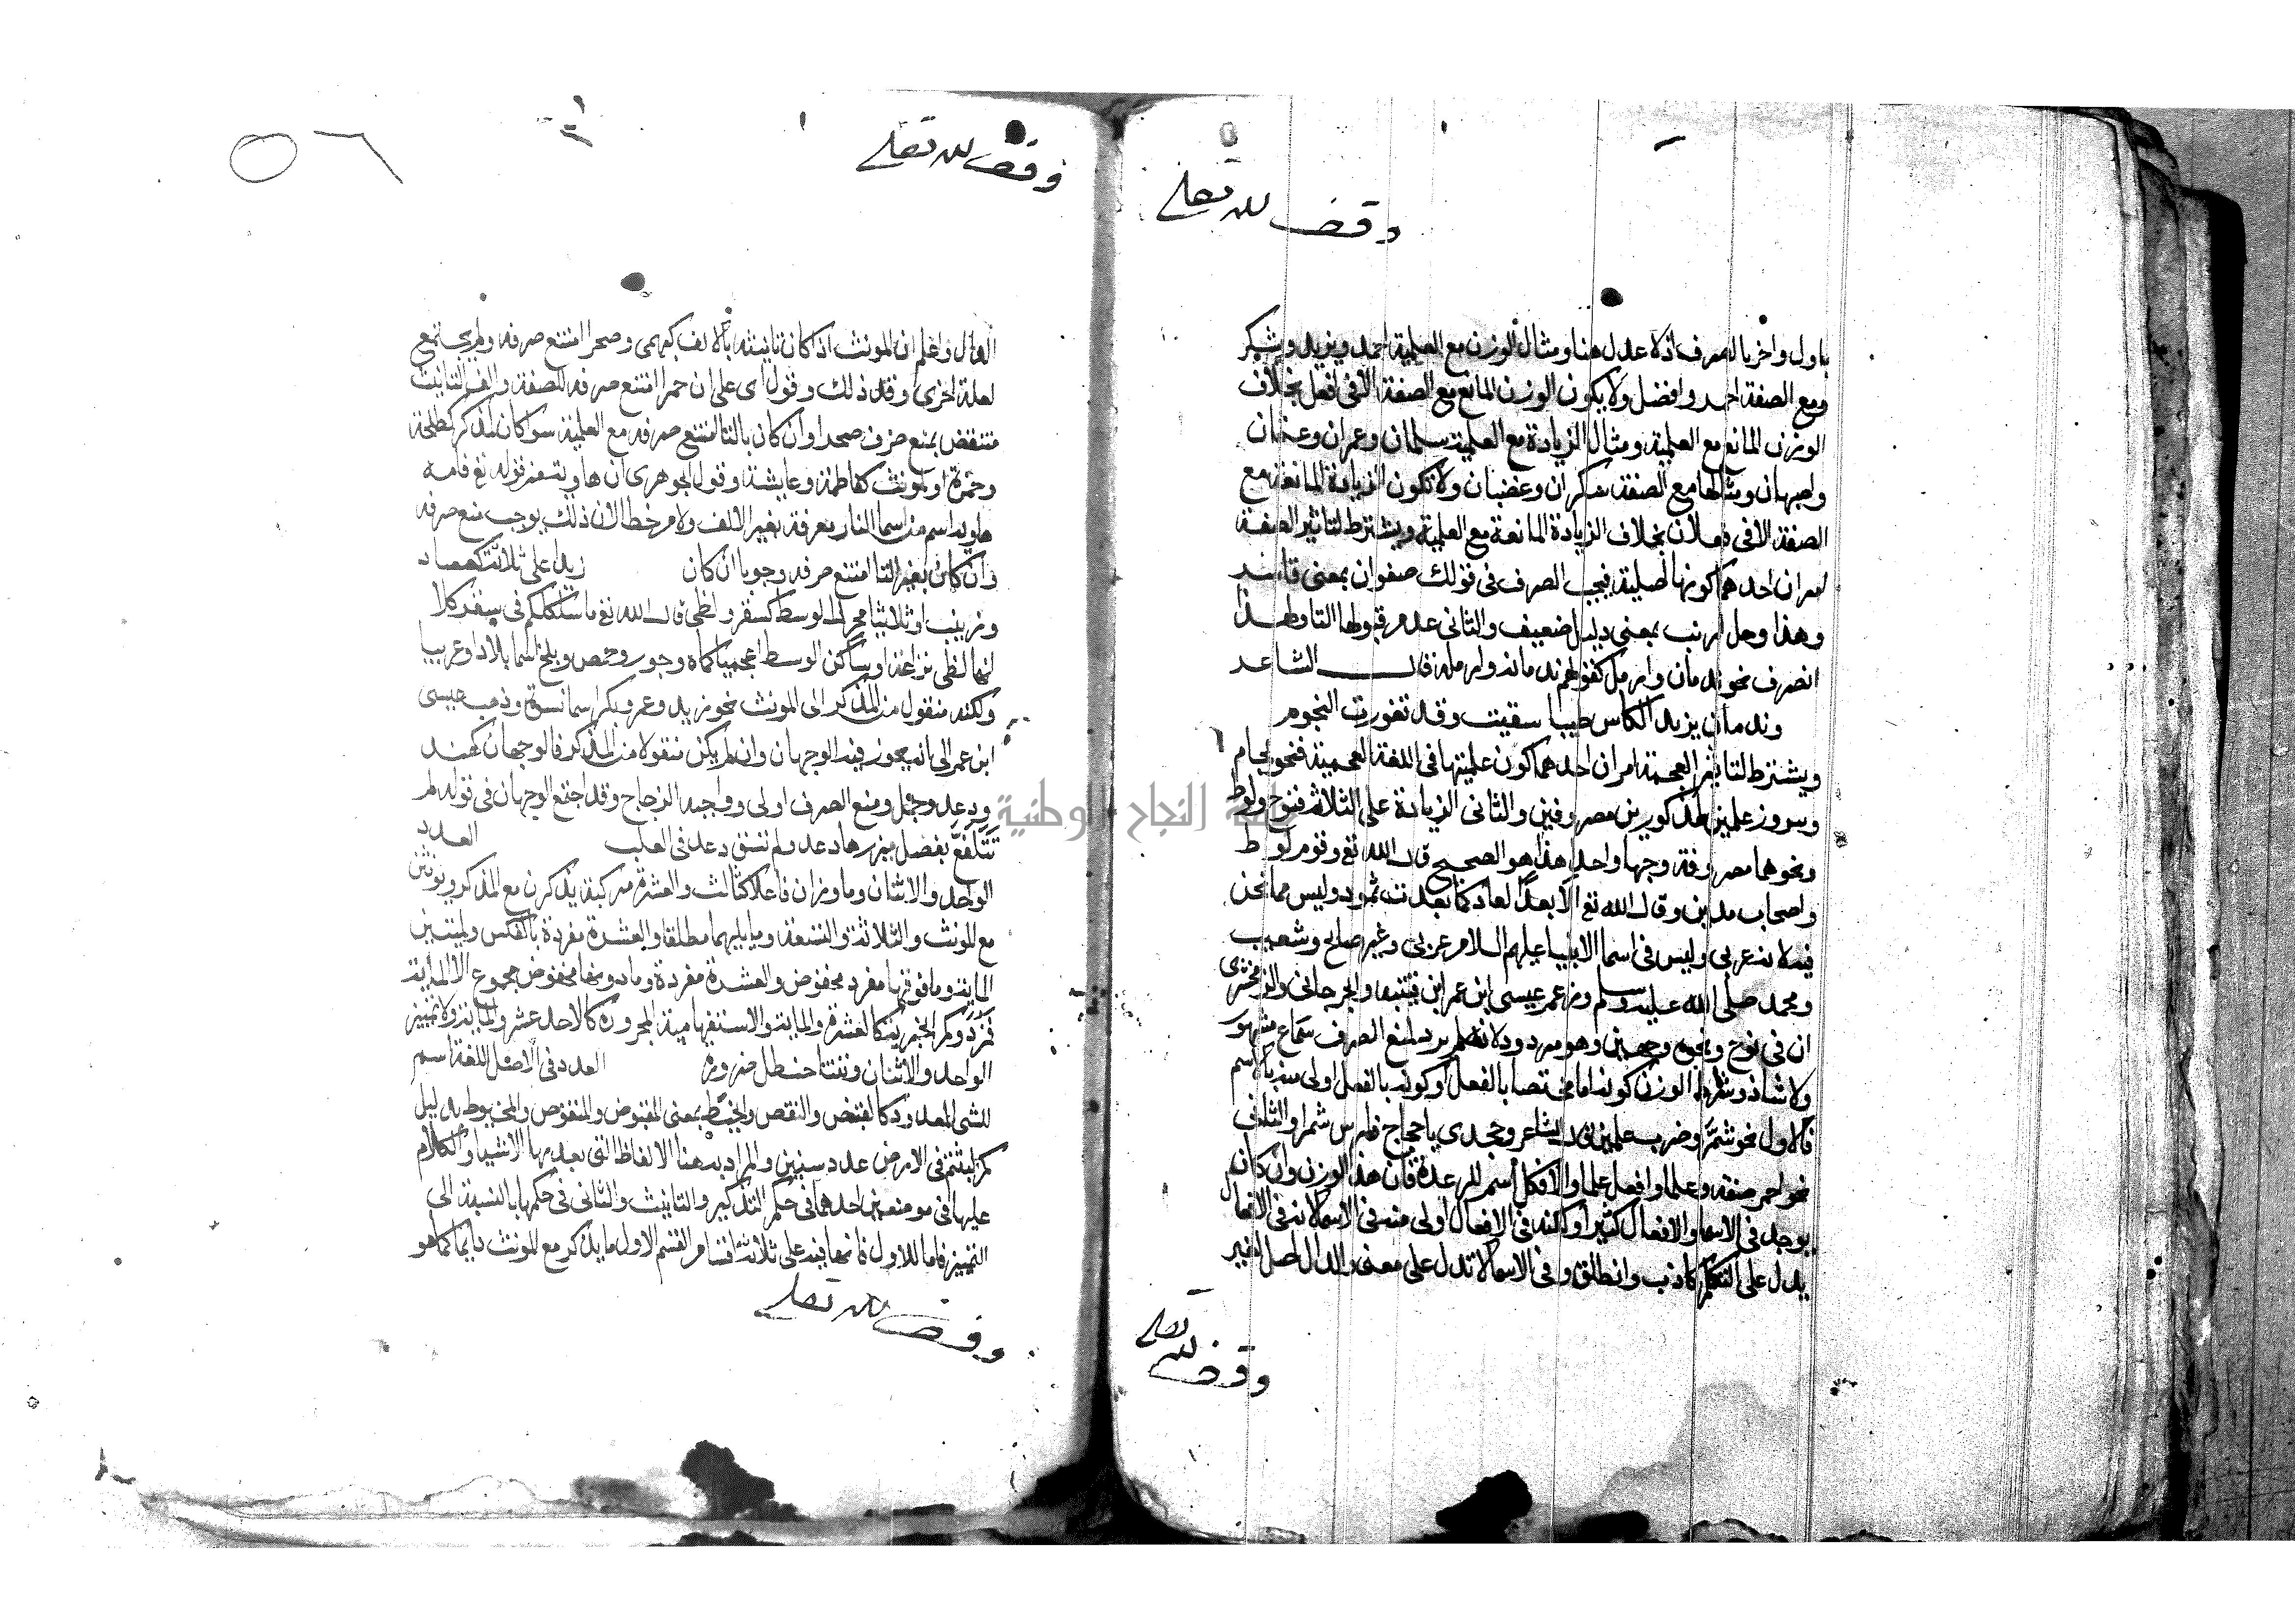 وقف لله تعالى
باول واخر بالصرف اذ لا عدل هنا ومثال الوزن مع العلمية احمد ويزيد ويشكر
ومع الصفة احمد وافضل ولا يكون الوزن المانع مع الصفة الا في افعل بخلاف
الوزن المانع مع العلمية ومثال الزيادة مع العلمية سلمان وعمران وعثمان
واصبهان ومثالها مع الصفة سكران وغضبان ولا تكون الزيادة المانعة مع
الصفة الا في فعلان بخلاف الزيادة المانعة مع العلمية ويشترط لتاثير الصفة
امران احدهما كونها اصلية فيجب الصرف في قولك صفوان بمعنى قاس
وهذا رجل ارنب بمعنى ذليل ضعيف والثاني عدم قبولها التا ولهذا
انصرف نحو ندمان وارمل كقولهم ندمانه وارمله قال الشاعر
وندمان يزيد الكاس طيبا سقيت وقد تغورت النجوم
ويشترط لتاثير العجمة امران احدهما كون علميتها في اللغة العجمية فنحو لجام
علمين لمذكورين مصروفين والثاني الزيادة على الثلاثة فنوح ولوط
ونحوهما مصروفة وجها واحدا هذا هو الصحيح قال الله تع وقوم لوط
واصحاب مدين وقال الله تع الا بعدا لعاد كما بعدت ثمود وليس مما نحن
فيه لانه عربي وليس في اسما الانبيا عليهم السلام عربي وغير صالح وشعيب
ومحمد صلى الله عليه وسلم وزعم عيسى ابن عمر ابن قتيبه والجرجاني والزمخشري
ان في نوح ونحوه وجهين وهو مردود لانه لم يرد بمنع الصرف سماع مشهور
ولا شاذ وشرط الوزن كونه اما مختصا بالفعل او كونه بالفعل اولى منه بالاسم
فالاول نحو شمر وضرب علمين قال الشاعر وجدي يا حجاج فارس شمرا والثاني
نحو احمر صفه وعلما وافضل علما والافكل اسم للرعدة فان هذا الوزن وان كان
يوجد في الاسما والافعال كثيرا ولكنه في الافعال اولى منه في الاسما لانه في الافعال
يدل على التكلم كاذهب وانطلق وفي الاسما لا تدل على معنى والدال اصل لغير
وقف لله تعلى
وقف لله تعالى
الدال واعلم ان المونث اذا كان تانيثه بالالف كبهمى وصحرا امتنع صرفه ولم يحتج مع
لعلة اخرى وقد ذلك وقول ابي على ان حمرا امتنع صرفه للصفة والف التانيث
منتقض بمنع صرف صحرا وان كان بالتا امتنع صرفه مع العلمية سوا كان لمذكر كطلحة
وحمزة او لمونث كفاطمة وعايشة وقول الجوهري ان هاويه قوله تع فامه
هاويه اسم من اسما النار معرفة بغير الالف ولام خطا لان ذلك يوجب منع صرفه
وان كان بغير التا امتنع صرفه وجوبا ان كان زيدا على ثلاثة كسعاد
وزينب او ثلاثيا محرك الوسط كسقر ولظى قال الله تع ما سلككم في سقر كلا
انها لظى نزاعة او ساكن الوسط اعجميا كماه وجور وحمص وبلخ اسما بلاد او عربيا
ولكنه منقول من المذكر الى المونث نحو زيد وعمرو بكر اسما نسوة وذهب عيسى
ابن عمر الى انه يجوز فيه الوجهان وان لم يكن منقولا من المذكر فالوجهان كهند
ودعد وجمل ومنع الصرف اولى وواجبه الزجاج وقد اجتمع الوجهان في قوله لم
تتلفع بفضل ميزرها دعد ولم تسق دعد في العلب العدد
الواحد والاثنان وما وازن فاعلا كثالث والعشرة مركبة يذكرن مع المذكر ويونثن
مع المونث والثلاثة والتسعة وما بينهما مطلقا والعشرة مفردة بالعكس
الماية وما فوقها مفرد مخفوض والعشرة مفردة وما دونها مخفوض مجموع الا الماية
وكم الخبرية كالعشرة والماية والاستفهامية المجرورة كالاحد عشر والماية ولا تمييز
الواحد والاثنان وثنتا حنظل ضرورة العدد في الاصل اللغة اسم
للشي المعدود كالقبض والنقص والخبط بمعنى المقبوض والمنقوص والمخبوط بدليل
كم لبثتم في الارض عدد سنين والمراد به هنا الالفاظ التي تعد بها الاشيا والكلام
عليها في موضعين احدهما في حكم التذكير والتانيث والثاني في حكمها بالنسبة الى
التمييز فاما الاول فانها فيه على ثلاثة اقسام القسم الاول ما يذكر مع المونث دايما كما هو
وقف لله تعلى
النجاح الوطنية